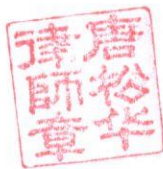 唐松华
律師章